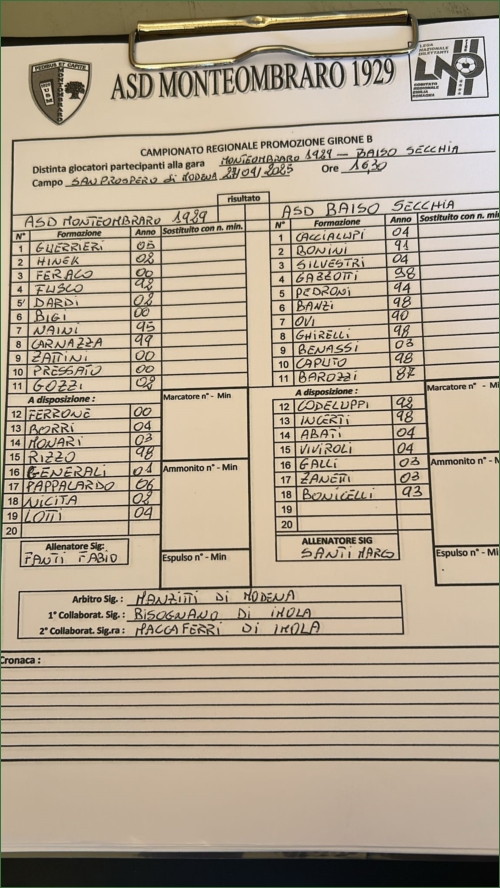 ASD MONTEOMBRARO 1929
LEGA NAZIONALE DILETTANTI
LND
COMITATO REGIONALE EMILIA ROMAGNA
CAMPIONATO REGIONALE PROMOZIONE GIRONE B
Distinta giocatori partecipanti alla gara MONTEOMBRARO 1929 - BAISO SECCHIA
Campo SAN PROSPERO di MODENA Ore 16,30
risultato
ASD MONTEOMBRARO 1929
N° Formazione Anno Sostituito con n. min.
1 GUERRIERI 05
2 HINEK 02
3 FERACO 00
4 FUSCO 92
5 DARDI 02
6 BIGI 00
7 NAINI 95
8 CARNAZZA 99
9 ZATTINI 00
10 PRESSATO 00
11 GOZZI 02
A disposizione : Marcatore n° - Min
12 FERRONE 00
13 BORRI 04
14 MONARI 03
15 RIZZO 98
16 GENERALI Ammonito n° - Min
17 PAPPALARDO 06
18 NICITA 02
19 LOTTI 04
20
Allenatore Sig: Espulso n° - Min
FANTI FABIO
ASD BAISO SECCHIA
N° Formazione Anno Sostituito con n. min
1 CACCIALUPI 04
2 BONINI 91
3 SILVESTRI 04
4 GAZZOTTI 98
5 PEDRONI 94
6 BANZI 98
7 OVI 90
8 GHIRELLI 98
9 BENASSI 03
10 CAPUTO 98
11 BAROZZI 87
A disposizione : Marcatore n° - Mi
12 CODELUPPI 92
13 INCERTI 98
14 ABATI 04
15 VIVIROLI 04
16 GALLI 03 Ammonito n° - M
17 ZANETTI 03
18 BONICELLI 93
19
20
ALLENATORE SIG Espulso n° - Mi
SANTI MARCO
Arbitro Sig. : MANZITTI DI MODENA
1° Collaborat. Sig.: BISOGNANO DI IMOLA
2° Collaborat. Sig.ra : MACCAFERRI DI IMOLA
Cronaca :